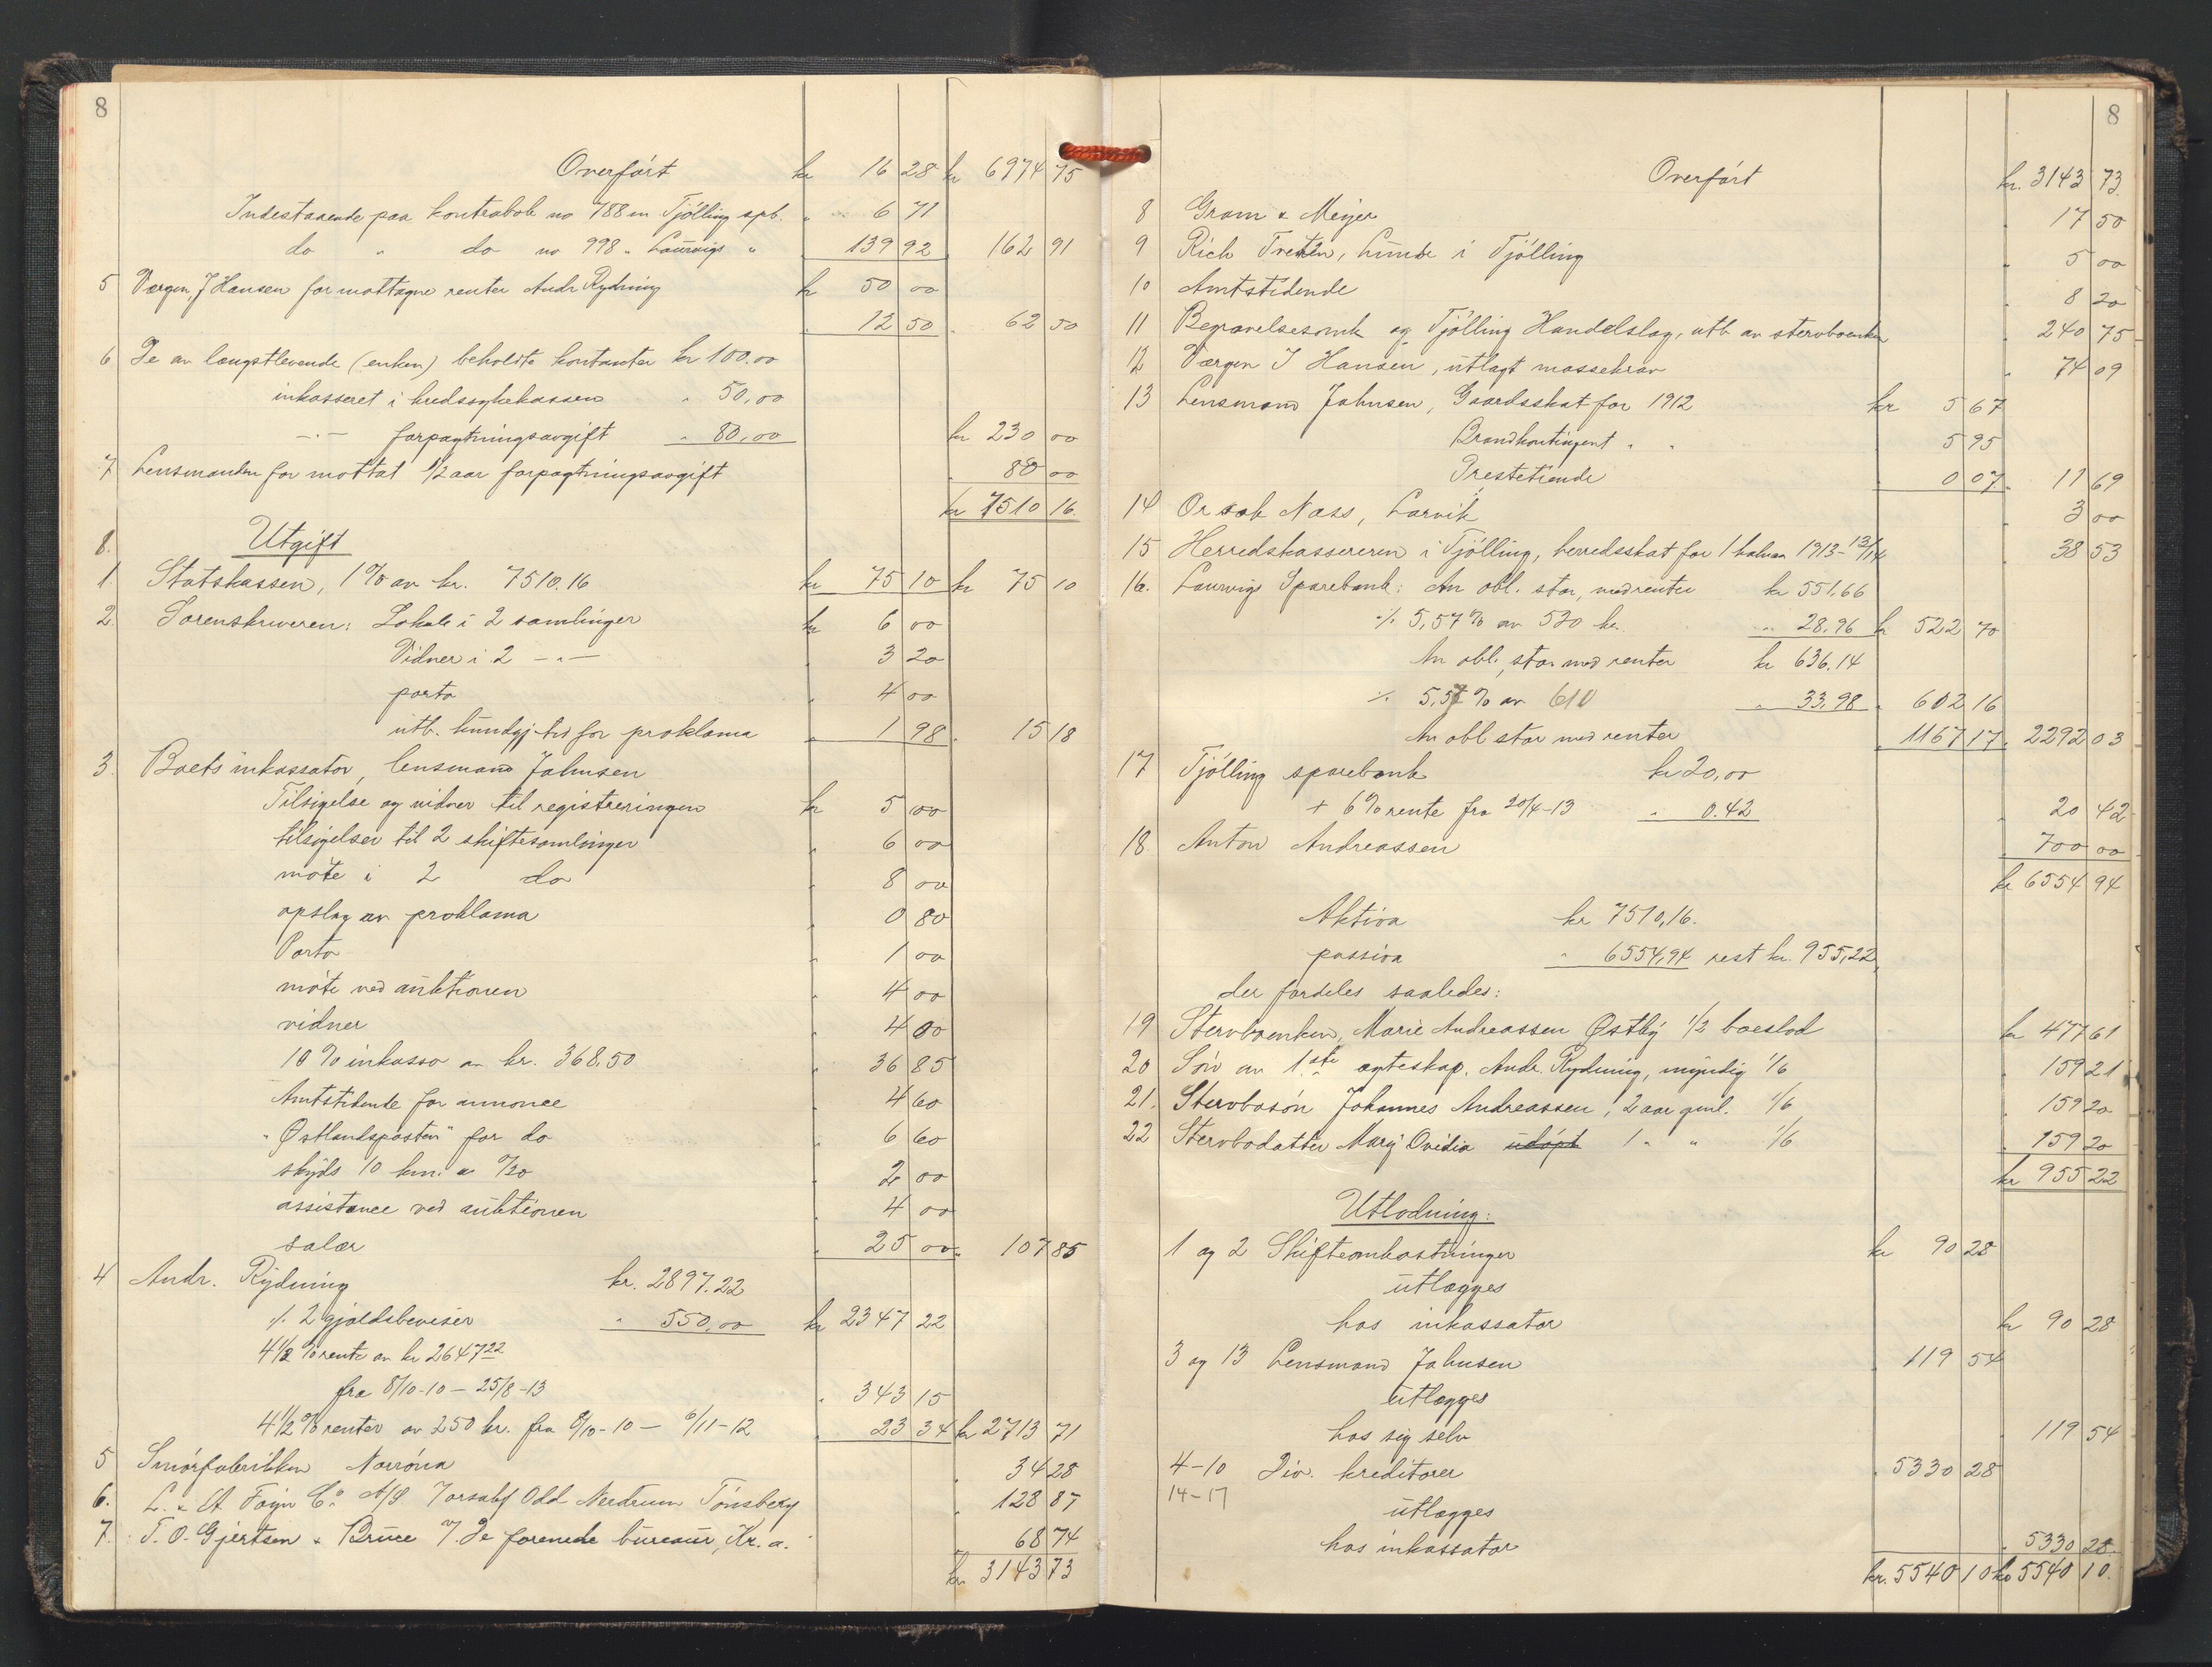 8
Overført kr 16 28 kr 6974 75
Indestaaende paa kontrabok no 788 in Tjølling spb. " 6 71
do " do no 998 " Laurvigs " 139 92 162 91
5 Værgen, J Hansen for mottagne renter Andr Rydning kr 50 00
12 50 62 50
6 De av længstlevende (enken) beholdte kontanter kr 100.00
inkasseret i kredssykekassen " 50,00
-"- forpagtningsavgift " 80,00 kr 230 00
7 Lensmanden for mottat 1/2 aar forpagtningsavgift 80 00
kr 7510 16
8. Utgift
1 Statskassen, 1% av kr. 7510.16 kr 75 10 kr 75 10
2. Sorenskriveren: Lokale i 2 samlinger kr 6 00
Vidner i 2 -"- 3 20
porto 4 00
utb. kundgj.tid for proklama 1 98 15 18
3. Boets inkassator, lensmand Johnsen
Tilsigelse og vidner til registreringen kr 5 00
tilsigelser til 2 skiftesamlinger 6 00
møte i 2 do 8 00
opslag av proklama 0 80
Porto 1 00
møte ved auktionen 4 00
vidner 4 00
10% inkasso av kr. 368,50 36 85
Amtstidende for annonce 4 60
"Østlandsposten" for do 6 60
skyds 10 km. a /20 2 00
assistance ved auktionen 4 00
salær 25 00 107 85
4 Andr. Rydning kr. 2897.22
÷ 2 gjældsbeviser " 550,00 kr 2347 22
4 1/2 % rente av kr 2647 22
fra 8/10-10 — 25/8-13 343 15
4 1/2 % renter av 250 kr. fra 8/10-10 — 6/11-12 23 34 kr 2713 71
5 Smørfabrikken Norrøna 34 28
6. L. & A. Foyn Co A/S v/orsakf Odd Nerdrum Tønsberg 128 87
7. T. O. Gjertsen & Bruce v/ De forenede bureaur, Kr.a. 68 74
kr 3143 73
8
Overført kr. 3143 73
8 Gram & Meyer 17 50
9 Rich Treten, Lunde i Tjølling 5 00
10 Amtstidende 8 20
11 Begravelsesomk og Tjølling Handelslag, utb av stervboenken 240 75
12 Værgen J Hansen, utlagt massekrav 74 09
13 Lensmand Johnsen, Gaardsskat for 1912 kr 5 67
Brandkontingent " " 5 95
Prestetiende 0 07 11 69
14 Orsak Næss, Larvik 3 00
15 Herredskassereren i Tjølling, herredsskat for 1 halvaar 1913-13/14 38 53
16. Laurvigs Sparebank: An obl. stor, med renter kr 551,66
÷ 5,57% av 520 kr. " 28,96 kr 522 70
An obl. stor med renter kr 636.14
÷ 5,57% av 610 " 33,98 602 16
An obl stor med renter 1167 17 2292 03
17 Tjølling sparebank kr 20,00
+ 6% rente fra 20/4-13 " 0.42 20 42
18. Anton Andreassen 700 00
kr 6554 94
Aktiva kr 7510,16.
passiva " 6554,94 rest kr. 955,22
der fordeles saaledes:
19 Stervboenken, Marie Andreassen Østby 1/2 boeslod kr 477 61
20 Søn av 1ste egteskap, Andr. Rydning, myndig 1/6 159 21
21. Stervbosøn Johannes Andreassen, 2 aar gml. 1/6 159 20
22 Stervbodatter Mary Ovidia udøpt 1 " " 1/6 159 20
kr 955 22
Utlodning:
1 og 2 Skifteomkostninger kr 90 28
utlægges
hos inkassator kr 90 28
3 og 13 Lensmand Johnsen 119 54
utlægges
hos sig selv 119 54
4-10 Div. kreditorer 5330 28
14-17
utlægges
hos inkassator 5330 28
kr. 5540 10 kr 5540 10